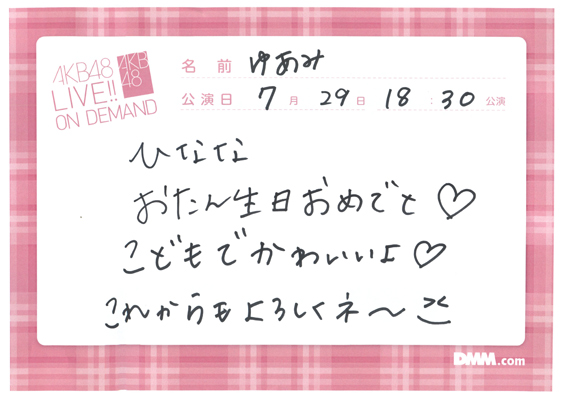 AKB48
LIVE!!
ON DEMAND
AKB
48
名前 ゆあみ
公演日 7月 29日 18:30公演
ひなな
おたん生日おめでと♡
こどもでかわいいよ♡
これからもよろしくネ〜
DMM.com